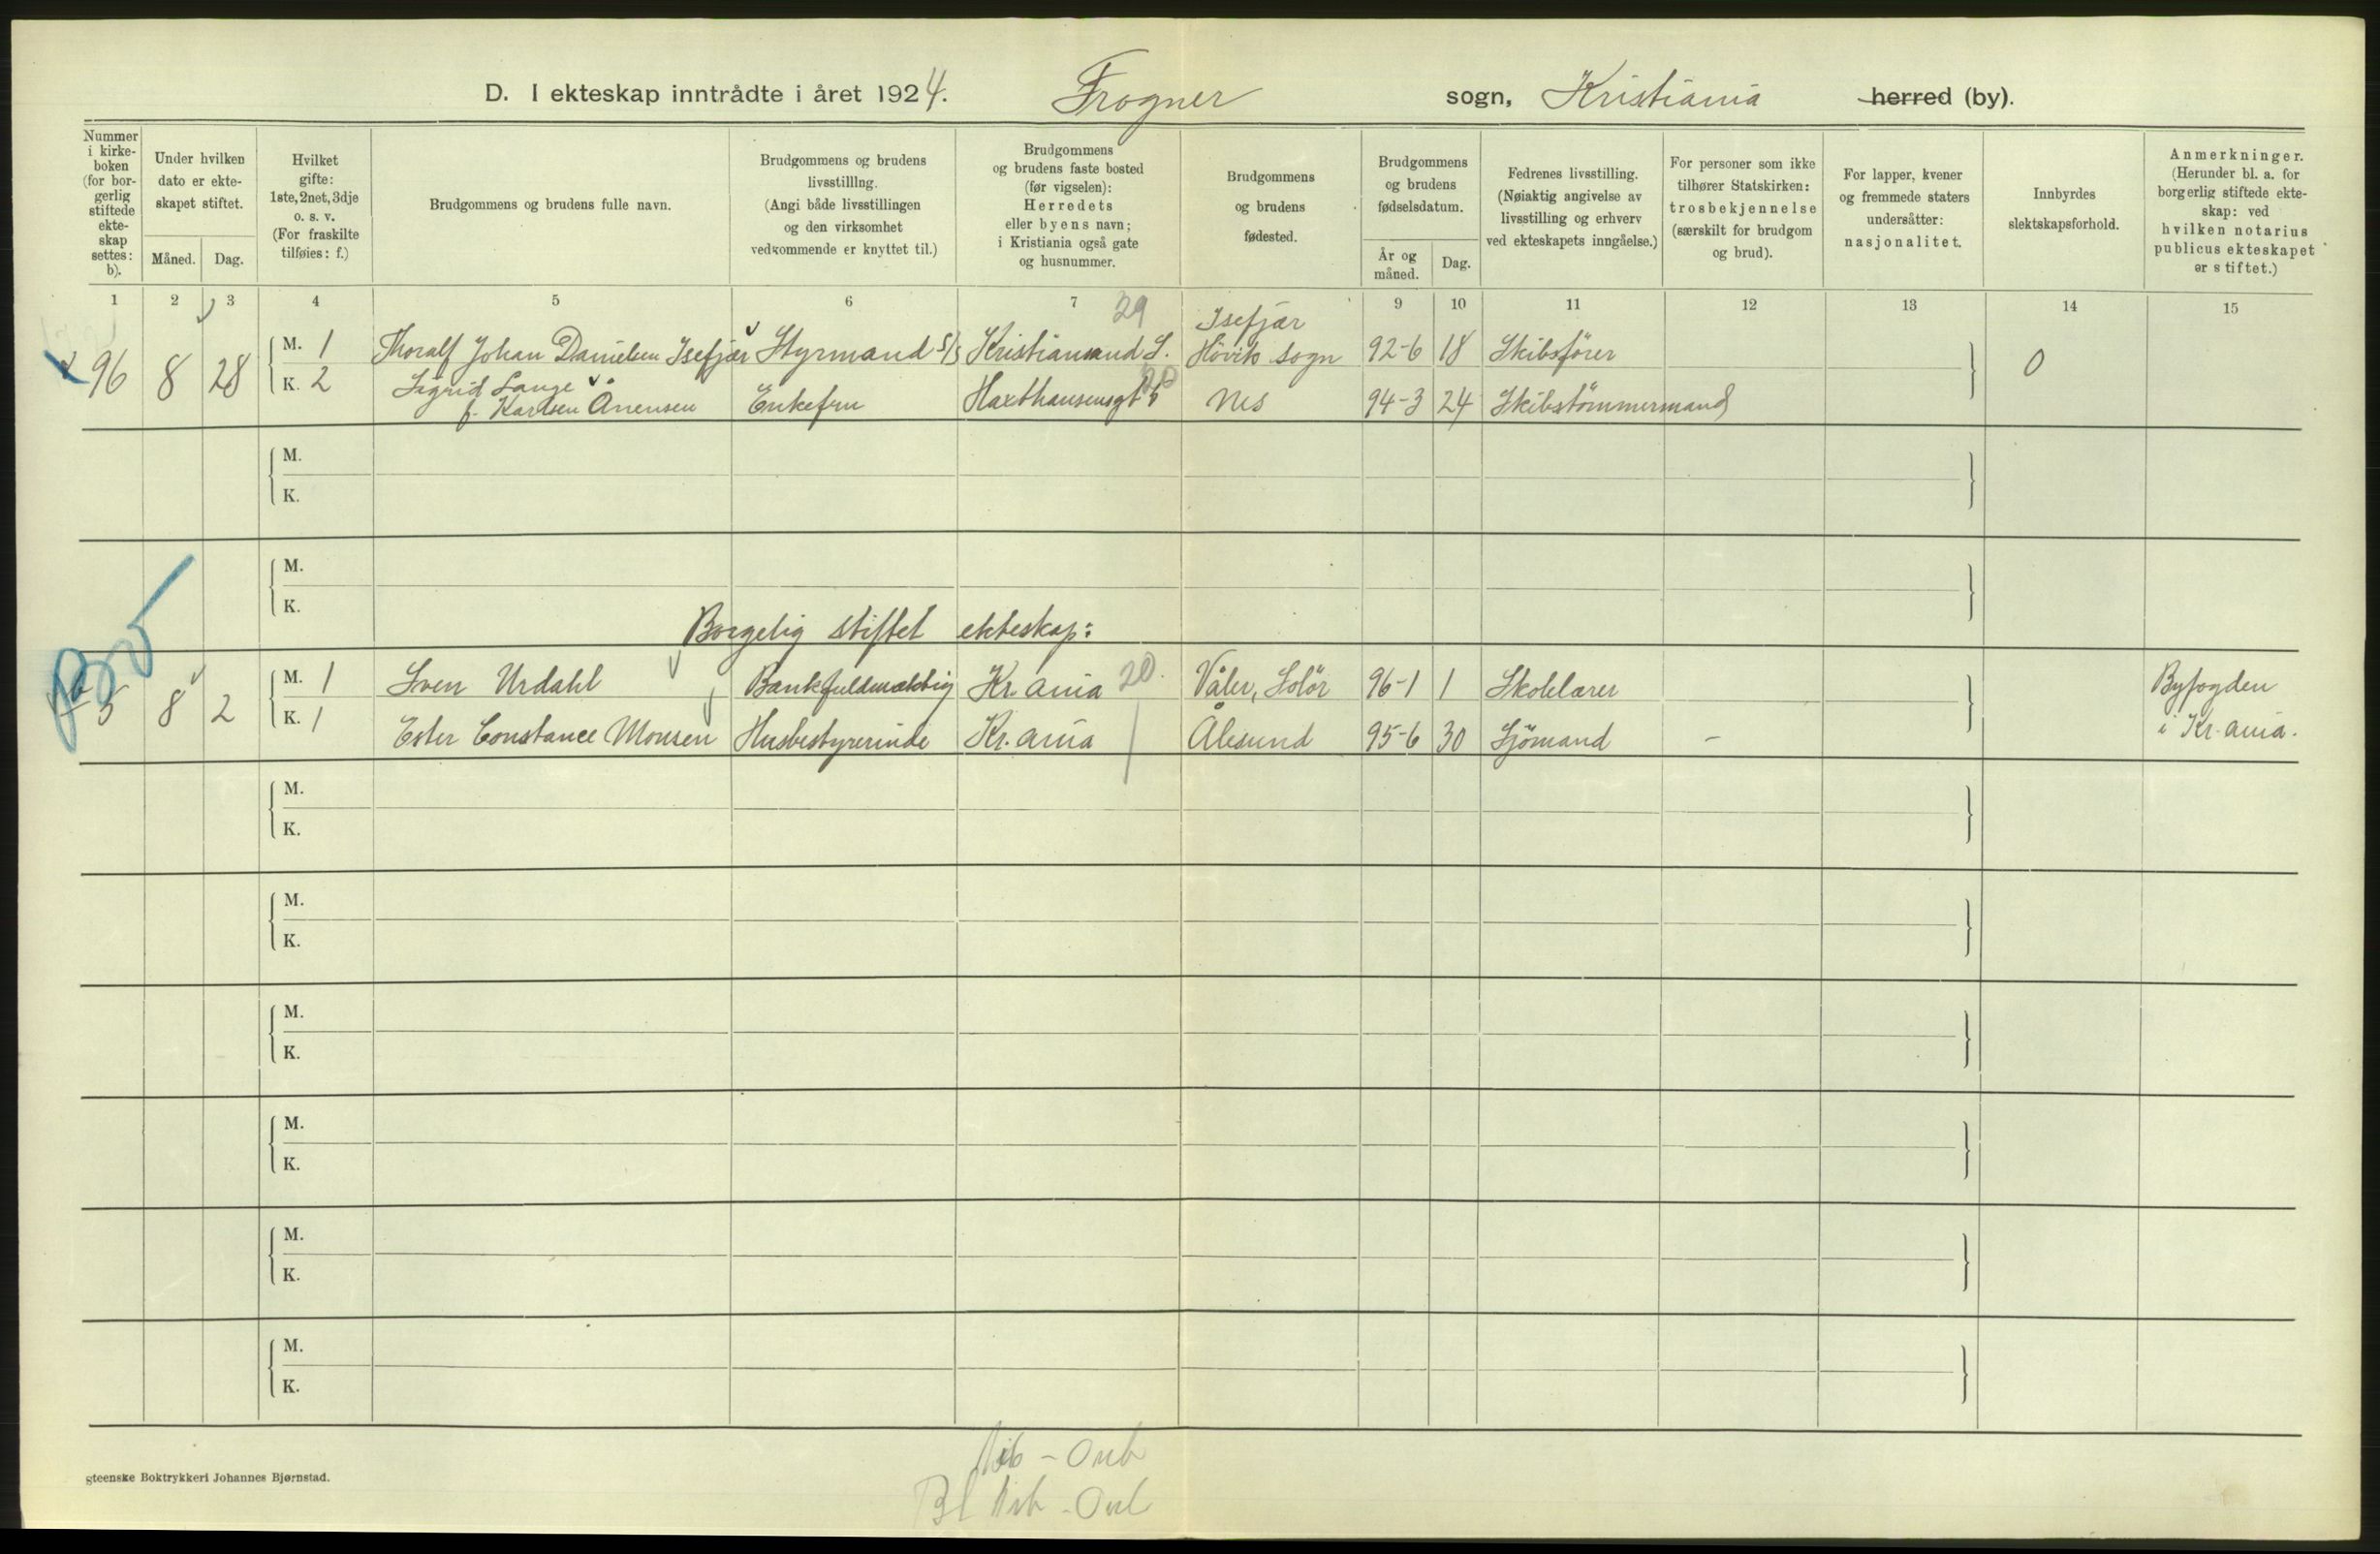 D. I ekteskap inntrådte i året 1924. Frogner sogn, Kristiania herred (by).
Nummer
i kirke-
boken
(for bor-
gerlig
stiftede
ekte-
skap
settes:
b).
Under hvilken
dato er ekte-
skapet stiftet.
Måned. Dag.
Hvilket
gifte:
1ste, 2net, 3dje
o. s. v.
(For fraskilte
tilføies: f.)
Brudgommens og brudens fulle navn.
Brudgommens og brudens
livsstilllng.
(Angi både livsstillingen
og den virksomhet
vedkommende er knyttet til.)
Brudgommens
og brudens faste bosted
(før vigselen):
Herredets
eller byens navn;
i Kristiania også gate
og husnummer.
Brudgommens
og brudens
fødested.
Brudgommens
og brudens
fødselsdatum.
År og
måned.
Dag.
Fedrenes livsstilling.
(Nøiaktig angivelse av
livsstilling og erhverv
ved ekteskapets inngåelse.)
For personer som ikke
tilhører Statskirken:
trosbekjennelse
(særskilt for brudgom
og brud).
For lapper, kvener
og fremmede staters
undersåtter:
nasjonalitet.
Innbyrdes
slektskapsforhold.
Anmerkninger.
(Herunder bl. a. for
borgerlig stiftede ekte-
skap: ved
hvilken notarius
publicus ekteskapet
er stiftet.)
1 2 3 4 5 6 7 8 9 10 11 12 13 14 15
29
Isefjær
96 8 28 M. 1 Thoralf Johan Danielsen Isefjær Styrmand S/S Kristiansand S. Hövik sogn 92-6 18 Skibsfører 0
K. 2 Sigrid Lange
f. Karlsen Ånensen Enkefru Haxthausensgt. Nes 94-3 24 Skibstömmermand
M.
K.
M.
K.
Borgelig stiftet ekteskap:
5 8 2 M. 1 Sven Urdahl Bankfuldmæktig Kr.ania 20. Våler, Solör 96-1 1 Skolelærer Byfogden
K. 1 Ester Constance Monsen Husbestyrerinde Kr.ania Ålesund 95-6 30 Sjömand - i Kr.ania.
M.
K.
M.
K.
M.
K.
M.
K.
M.
K.
M.
K.
gteenske Boktrykkeri Johannes Bjørnstad.